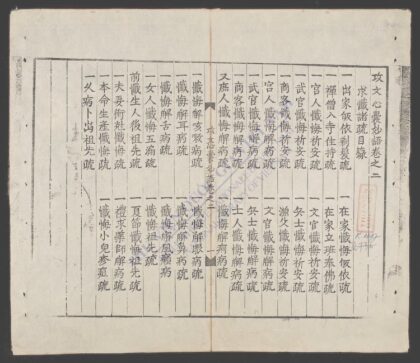 攻文心覺妙語卷之二
求懺諸疏目錄
一出家皈依剃髮疏 一在家懺悔皈依疏
一禪僧入寺住持疏 一在家立班奉佛疏
一官人懺悔祈安疏 一文官懺悔祈安疏
一武官懺悔祈安疏 一兵士懺悔祈安疏
一商客懺悔祈安疏 一漁父懺悔祈安疏
一宮人懺悔解病疏 一文官懺悔解病疏
一武官懺悔解病疏 一兵士懺悔解病疏
一商客懺悔解病疏 一士人懺悔解病疏
又班人懺悔解病疏 懺悔解病疏
卷之二
一懺悔解咳嗽疏 懺悔解病疏
一懺悔解耳病疏 一懺悔解鼻病疏
一懺悔解舌病疏 一懺悔病疏
一女人懺悔五漏疏 一懺悔祖先疏
前懺生人後祖先疏 一夏節懺悔祖先疏
一夫妻術魅懺悔疏 一禮求藥師解病疏
一本命生產懺悔疏 一懺悔小兒麥痘疏
一久病卜出祖先疏